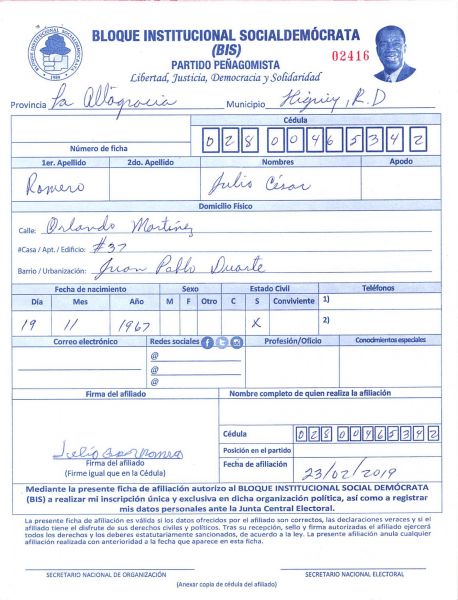 BLOQUE INSTITUCIONAL SOCIALDEMÓCRATA
BLOQUE INSTITUCIONAL SOCIALDEMÓCRATA
(BIS)
PARTIDO PEÑAGOMISTA
02416
Libertad, Justicia, Democracia y Solidaridad
Provincia La Altagracia Municipio Higüey, R.D
Cédula
Número de ficha 028 0046534 2
1er. Apellido 2do. Apellido Nombres Apodo
Romero Julio César
Domicilio Físico
Calle: Orlando Martínez
#Casa / Apt. / Edificio: #37
Barrio / Urbanización: Juan Pablo Duarte
Fecha de nacimiento Sexo Estado Civil Teléfonos
Día Mes Año M F Otro C S Conviviente 1)
19 11 1967 X 2)
Correo electrónico Redes sociales Profesión/Oficio Conocimientos especiales
@
@
@
Firma del afiliado Nombre completo de quien realiza la afiliación
Cédula 028 0046534 2
Posición en el partido
Julio Cesar Romero
Firma del afiliado
(Firme igual que en la Cédula)
Fecha de afiliación 23/02/2019
Mediante la presente ficha de afiliación autorizo al BLOQUE INSTITUCIONAL SOCIAL DEMÓCRATA
(BIS) a realizar mi inscripción única y exclusiva en dicha organización política, así como a registrar
mis datos personales ante la Junta Central Electoral.
La presente ficha de afiliación es válida si los datos ofrecidos por el afiliado son correctos, las declaraciones veraces y si el
afiliado tiene el disfrute de sus derechos civiles y políticos. Tras su recepción, sello y firma autorizados el afiliado ejercerá
todos los derechos y los deberes estatutariamente sancionados, de acuerdo a la ley. La presente afiliación anula cualquier
afiliación realizada con anterioridad a la fecha que aparece en esta ficha.
SECRETARIO NACIONAL DE ORGANIZACIÓN SECRETARIO NACIONAL ELECTORAL
(Anexar copia de cédula del afiliado)